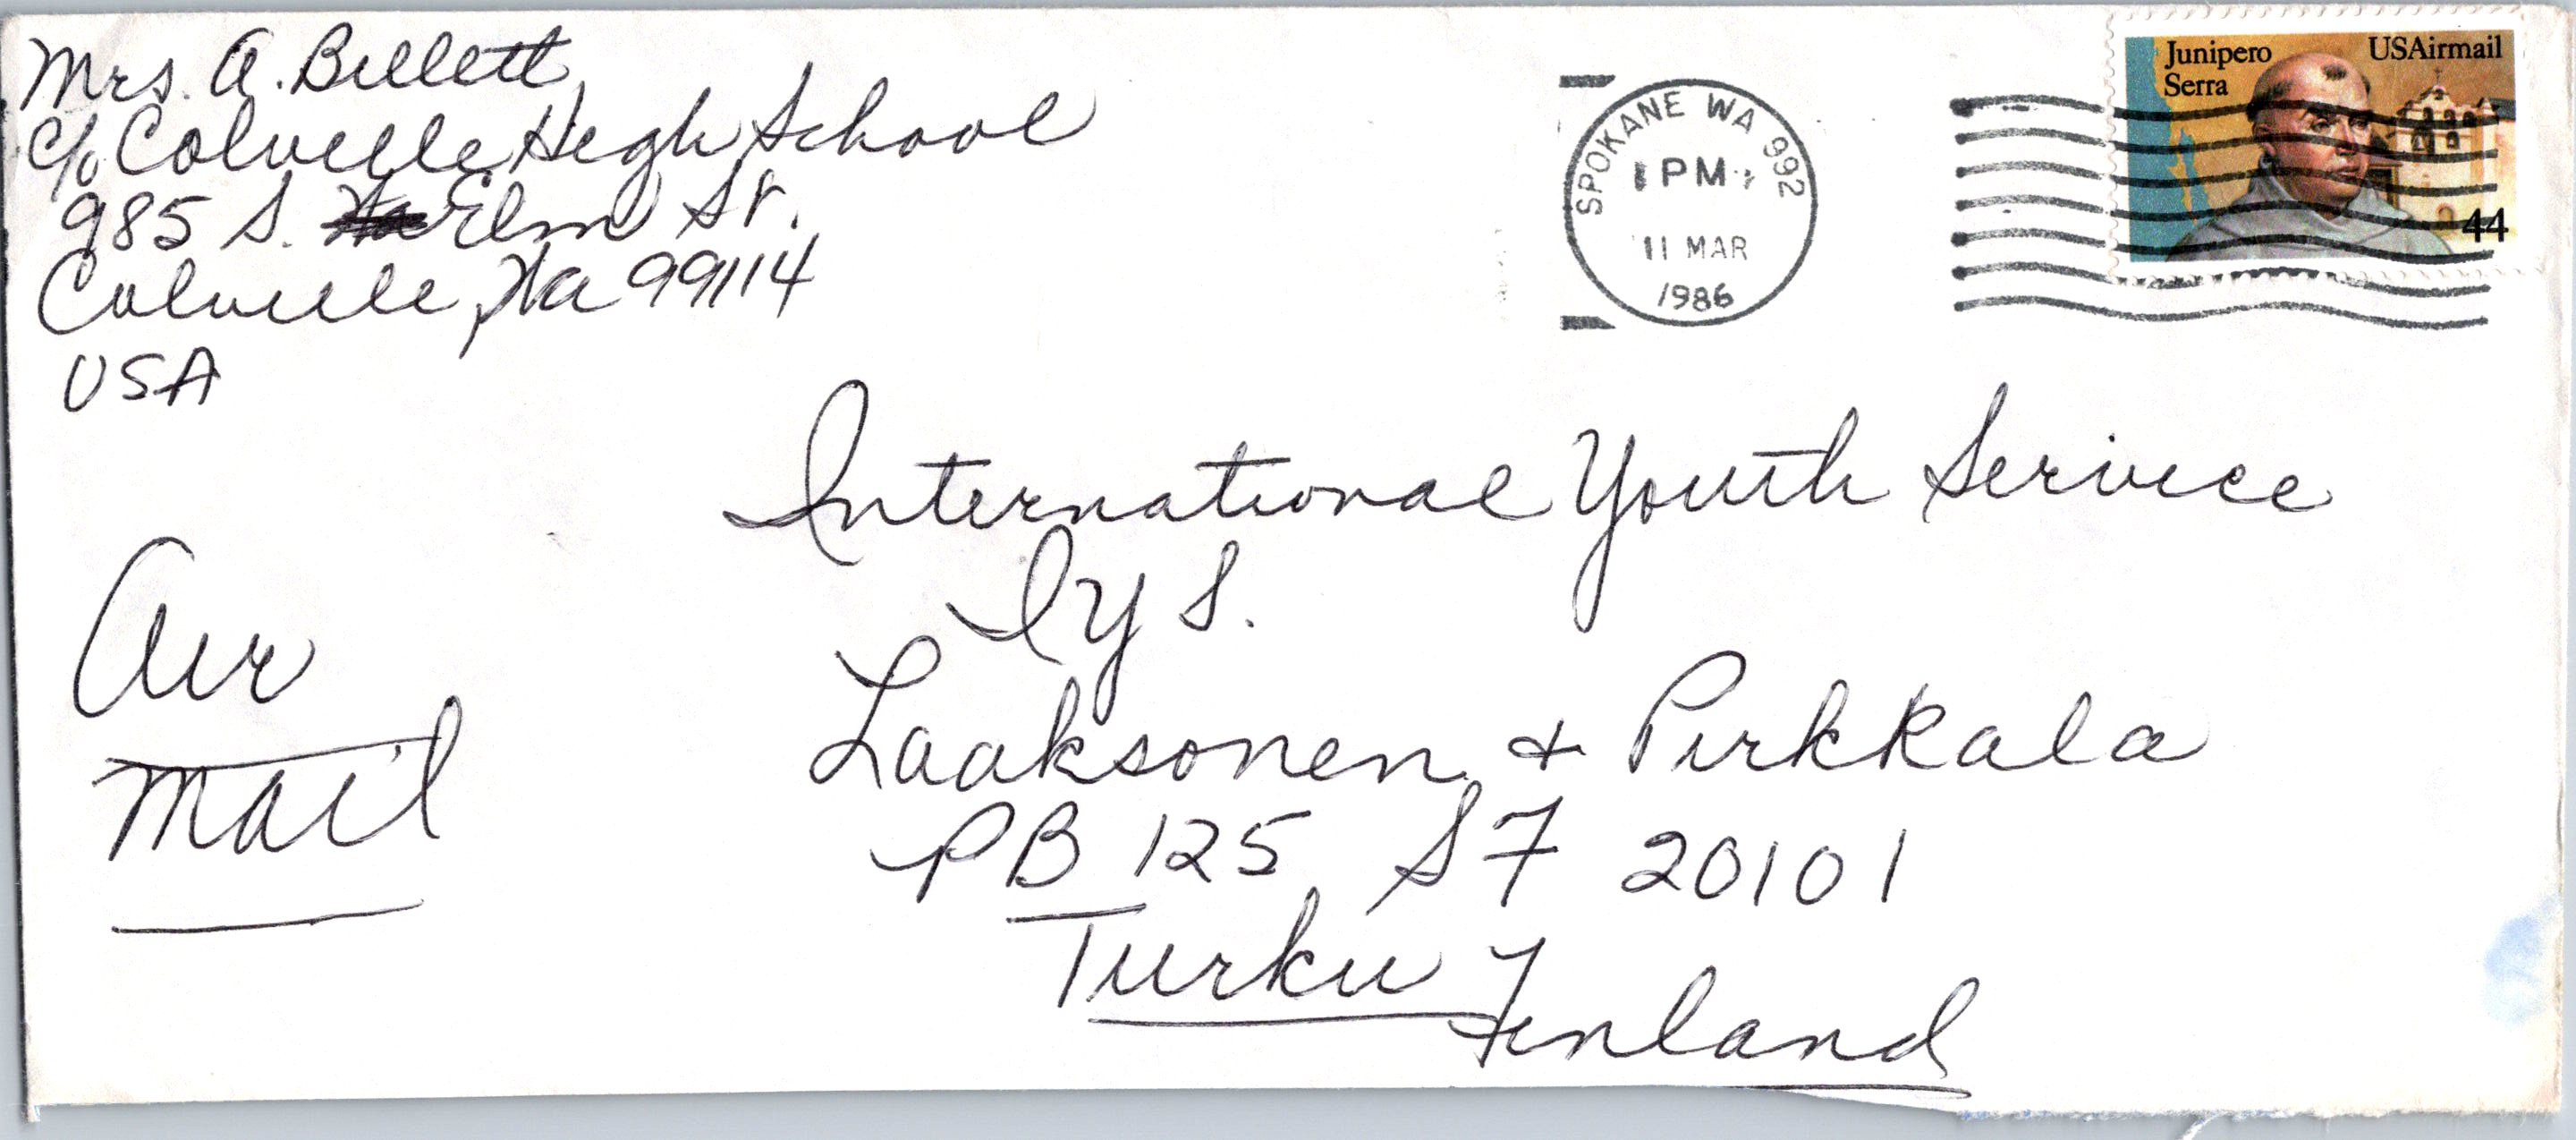 Mrs. A. Billett
c/o Colville High School
985 S. Elm St.
Colville, Wa 99114
USA
SPOKANE WA 992
PM
11 MAR
1986
Junipero Serra
USAirmail
44
International Youth Service
IYS.
Laaksonen & Pirkkala
PB 125 SF 20101
Turku
Finland
Air
Mail